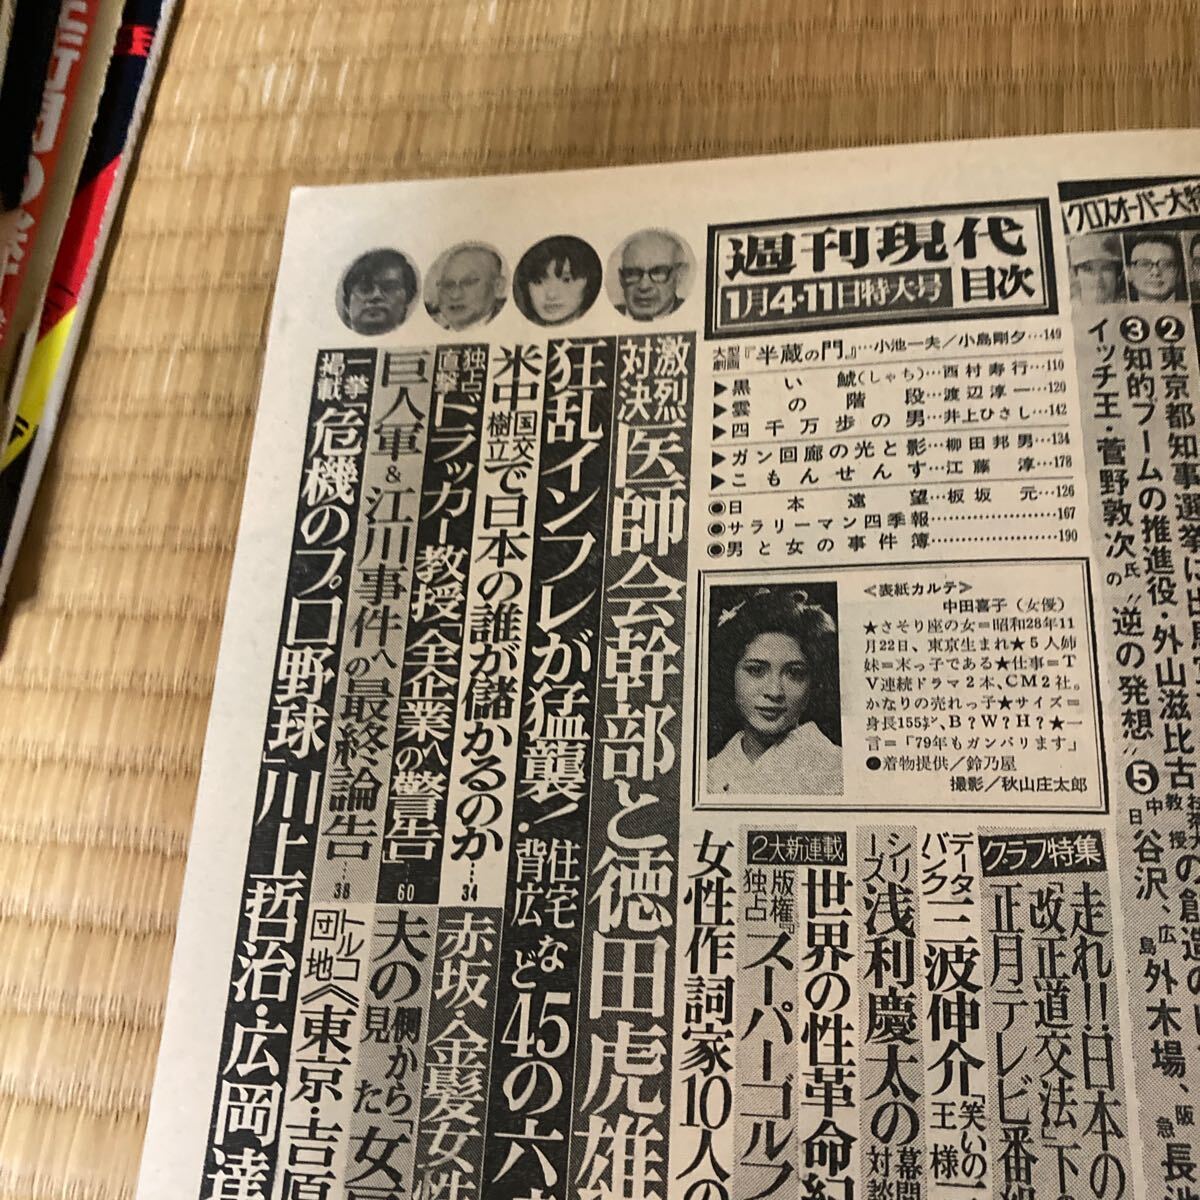 週刊現代
1月4・11日特大号
目次
大型劇画『半蔵の門』…小池一夫／小島剛夕…149
▶黒い鯱(しゃち)…西村寿行…110
▶雲の階段…渡辺淳一…120
▶四千万歩の男…井上ひさし…142
▶ガン回廊の光と影…柳田邦男…134
▶こもんせんす…江藤淳…178
●日本遠望…板坂元…126
●サラリーマン四季報…167
●男と女の事件簿…190
≪表紙カルテ≫
中田喜子（女優）
★さそり座の女＝昭和28年11
月22日、東京生まれ★5人姉
妹＝末っ子である★仕事＝T
V連続ドラマ2本、CM2社。
かなりの売れっ子★サイズ＝
身長155㌢、B？W？H？★一
言＝「79年もガンバリます」
●着物提供／鈴乃屋
撮影／秋山庄太郎
クロスオーバー大特
②東京都知事選挙に出馬
③知的ブームの推進役・外山滋比古
教授の創造の
イッチ王・菅野敦次氏の〝逆の発想〟⑤
谷沢、広
外木場、阪
グラフ特集
走れ!!日本の
「改正道交法」下
正月テレビ番
データバンク三波伸介「笑いの
王様
シリーズ浅利慶太の幕間
対談
2大新連載
世界の性革命紀
版権独占『スーパーゴルフ
女性作詞家10人の
激烈対決医師会幹部と徳田虎雄
狂乱インフレが猛襲！・住宅・背広など45の六
米中国交樹立で日本の誰が儲かるのか…34
赤坂・金髪女性
独占直撃ドラッカー教授「全企業への警告」…60
夫の側から見た「女
巨人軍＆江川事件への最終論告…38
トルコ団地≪東京・吉原
一挙掲載「危機のプロ野球」川上哲治・広岡達